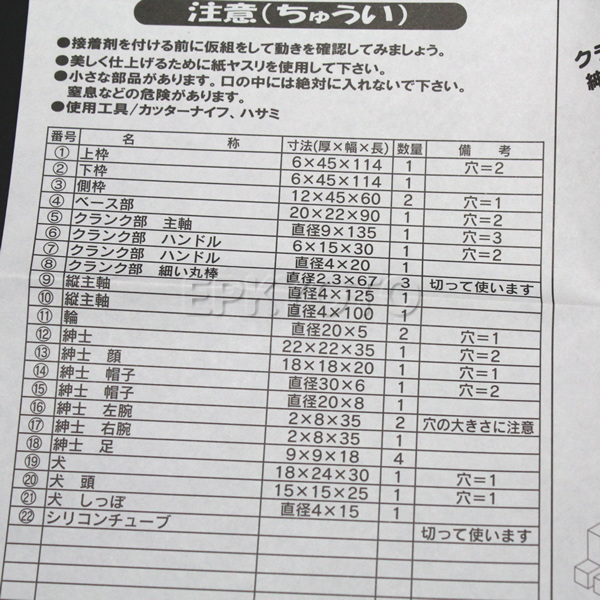 注意(ちゅうい)
●接着剤を付ける前に仮組をして動きを確認してみましょう。
●美しく仕上げるために紙ヤスリを使用して下さい。
●小さな部品があります。口の中には絶対に入れないで下さい。
窒息などの危険があります。
●使用工具/カッターナイフ、ハサミ
番号 名 称 寸法(厚×幅×長) 数量 備 考
① 上枠 6×45×114 1 穴=2
② 下枠 6×45×114 1
③ 側枠 12×45×60 2 穴=1
④ ベース部 20×22×90 1 穴=2
⑤ クランク部 主軸 直径9×135 1 穴=3
⑥ クランク部 ハンドル 6×15×30 1 穴=2
⑦ クランク部 ハンドル 直径4×20 1
⑧ クランク部 細い丸棒 直径2.3×67 3 切って使います
⑨ 縦主軸 直径4×125 1
⑩ 縦主軸 直径4×100 1
⑪ 輪 直径20×5 2 穴=1
⑫ 紳士 22×22×35 1 穴=2
⑬ 紳士 顔 18×18×20 1 穴=1
⑭ 紳士 帽子 直径30×6 1 穴=2
⑮ 紳士 帽子 直径20×8 1
⑯ 紳士 左腕 2×8×35 2 穴の大きさに注意
⑰ 紳士 右腕 2×8×35 1
⑱ 紳士 足 9×9×18 4
⑲ 犬 18×24×30 1 穴=1
⑳ 犬 頭 15×15×25 1 穴=1
㉑ 犬 しっぽ 直径4×15 1
㉒ シリコンチューブ 切って使います